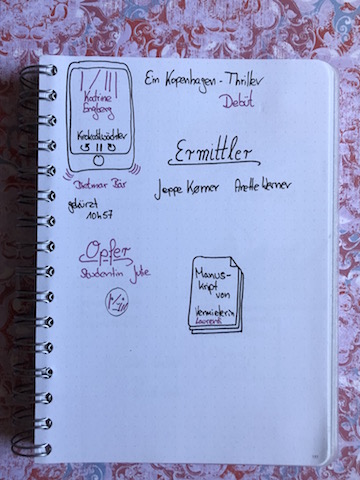 I/III
Katrine
Engberg
Krokodilwächter
Dietmar Bär
gekürzt
10h57
Ein Kopenhagen-Thriller
Debüt
Ermittler
Jeppe Kørner Anette Werner
Opfer
Studentin Julie
Manus-
kript
von
Vermieterin